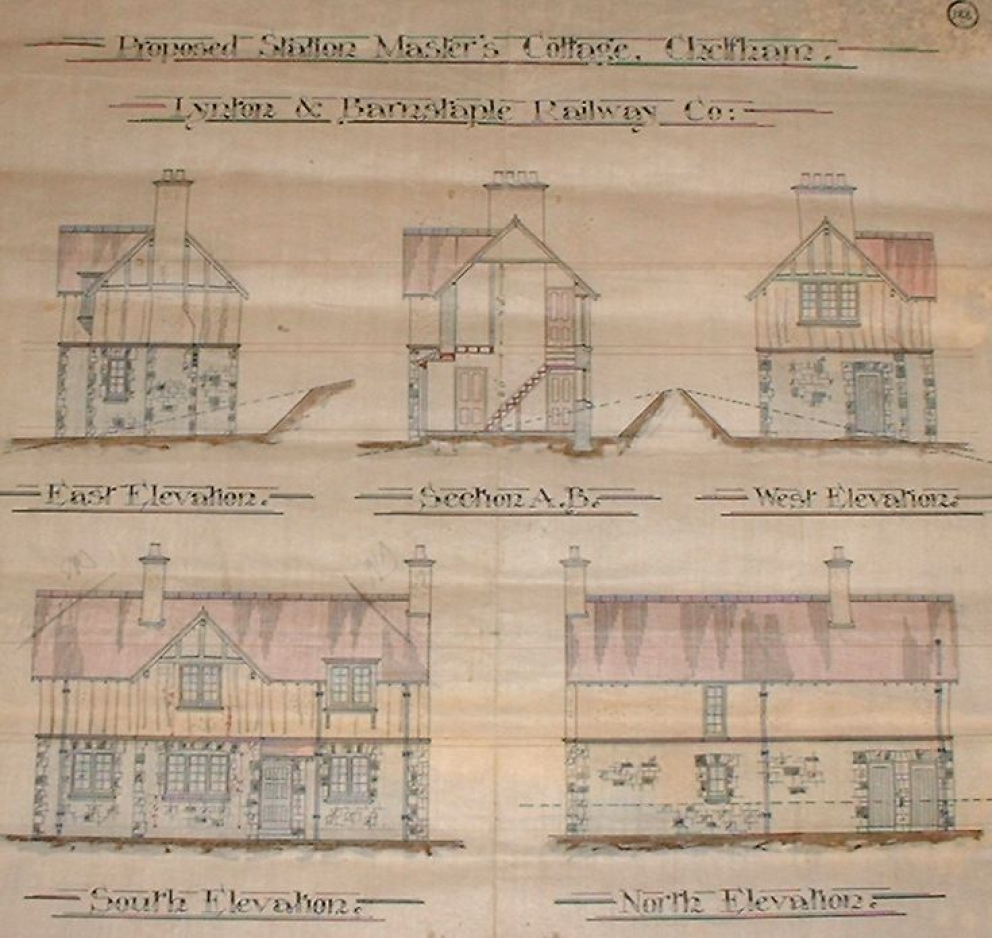 Proposed Station Master's Cottage, Chelfham.
Lynton & Barnstaple Railway Co:
East Elevation.
Section A.B.
West Elevation.
South Elevation.
North Elevation.